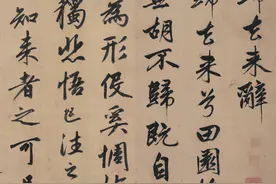 歸去来辭
歸去来兮田園
蕪胡不歸既自
為形役奚惆
獨悲悟已往之
知来者之可